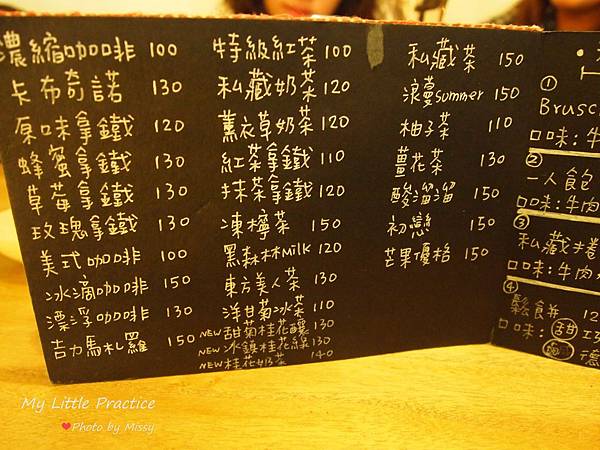 濃縮咖啡 100
卡布奇諾 130
原味拿鐵 120
蜂蜜拿鐵 130
草莓拿鐵 130
玫瑰拿鐵 130
美式咖啡 100
冰滴咖啡 150
漂浮咖啡 130
吉力馬札羅 150
特級紅茶 100
私藏奶茶 120
薰衣草奶茶 120
紅茶拿鐵 110
抹茶拿鐵 120
凍檸茶 150
黑森林Milk 120
東方美人茶 130
洋甘菊冰茶 110
NEW 甜菊桂花釀 130
NEW 冰鎮桂花綠 130
NEW 桂花奶茶 140
私藏茶 150
浪蔓summer 150
柚子茶 110
薑花茶 130
酸溜溜 150
初戀 150
芒果優格 150
①
Brusc
口味:牛
②
一人食包
口味:牛肉
③
私藏捲
口味:牛肉
④
鬆餅 12
口味:甜
鹹 德
My Little Practice
Photo by Missy